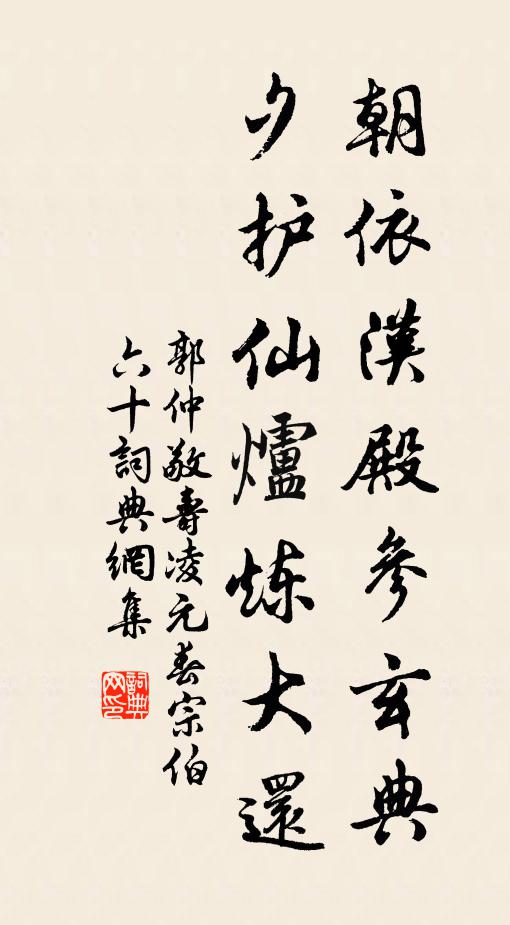 朝依漢殿參玄典
夕护仙爐炼大還
郭仲敬壽凌元春宗伯
六十詞典網集
詞典网印